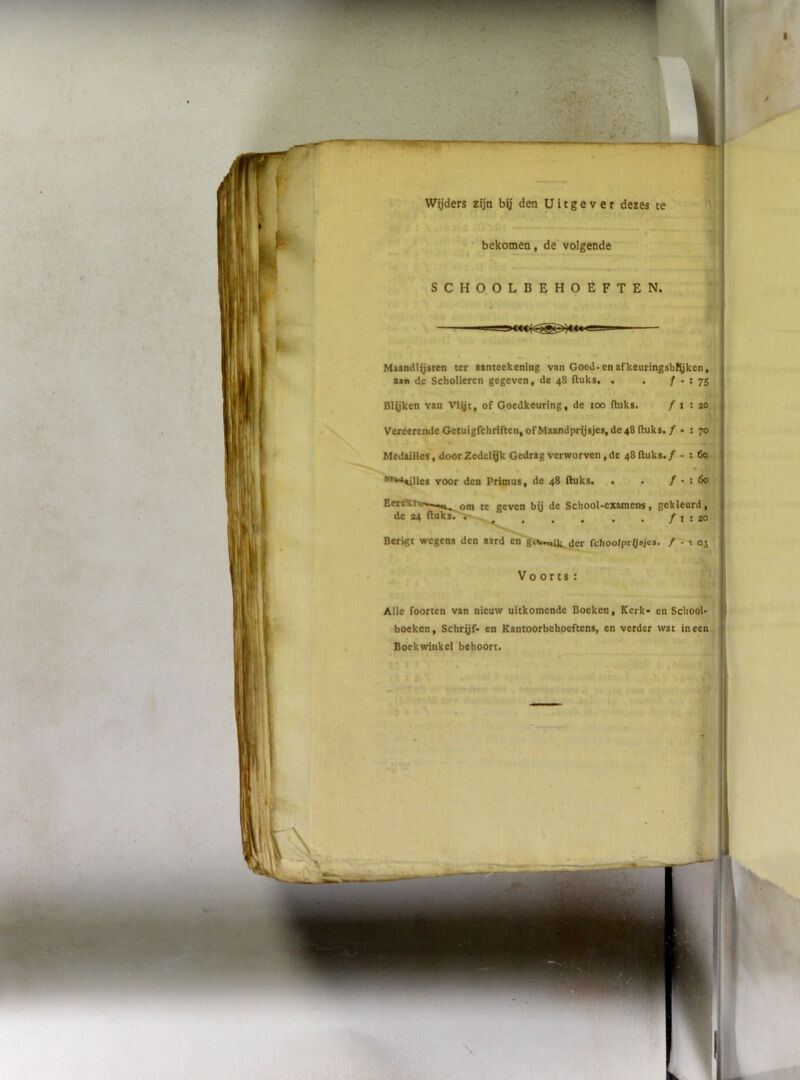 Wijders zijn bij den Uitgever dezes te
bekomen, de volgende
SCHOOLBEHOEFTEN.
Maandlijsten ter aanteekening van Goed- en afkeuringsblijken,
aan de Scholieren gegeven, de 48 ſtuks. . . f - : 75
Blijken van Vlijt, of Goedkeuring, de 100 ſtuks. f 1 : 20
Vereerende Getuigſchriften, of Maandprijsjes, de 48 ſtuks. f - : 70
Medailles, door Zedelijk Gedrag verworven, de 48 ſtuks. f - : 60
Medailles voor den Primus, de 48 ſtuks. . . f - : 60
om te geven bij de School-examens, gekleurd,
de 24 ſtuks. . . . . . . . f 1 : 20
Berigt wegens den aard en der ſchoolprijsjes. f - : 03
Voorts:
Alle ſoorten van nieuw uitkomende Boeken, Kerk- en School-
boeken, Schrijf- en Kantoorbehoeftens, en verder wat in een
Boekwinkel behoort.